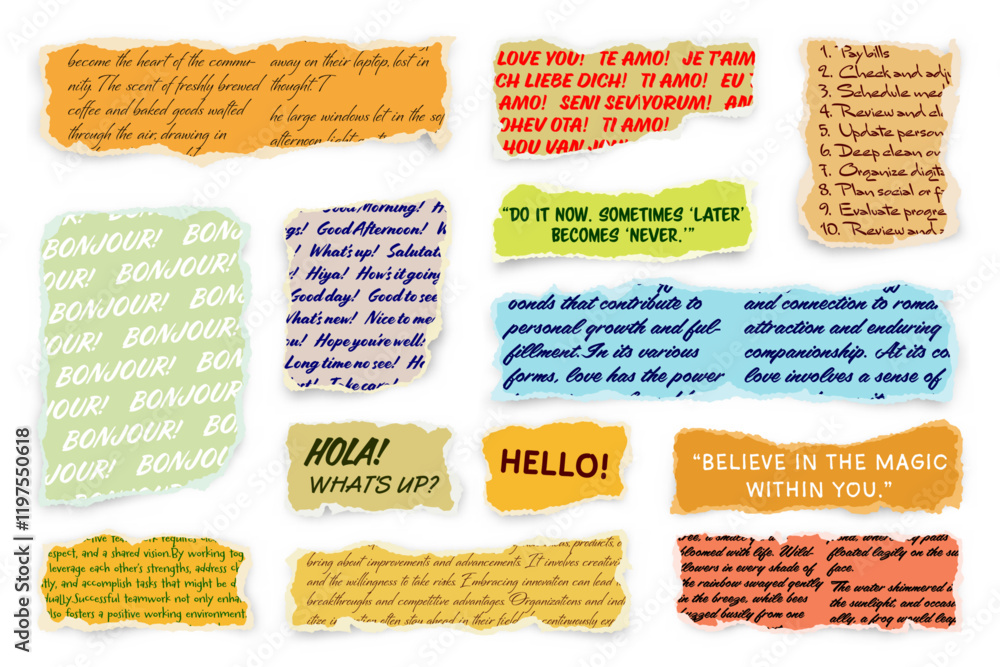 become the heart of the commu-
nity. The scent of freshly brewed
coffee and baked goods wafted
through the air, drawing in
away on their laptop, lost in
thought. T
he large windows let in the so
afternoon light
LOVE YOU! TE AMO! JE T'AIM
CH LIEBE DICH! TI AMO! EU T
AMO! SENI SEVIYORUM! AN
OHEV OTA! TI AMO!
HOU VAN JOU
1. Pay bills
2. Check and adj
3. Schedule med
4. Review and cl
5. Update person
6. Deep clean or
7. Organize digita
8. Plan social or f
9. Evaluate progre
10. Review and
BONJOUR! BONJ
OUR! BONJOUR!
BONJOUR! BON
OUR! BONJOUR!
BONJOUR! BON
JOUR! BONJOUR!
BONJOUR! BO
JOUR! BONJOU
Good Morning! H
gs! Good Afternoon! W
What's up! Salutat
! Hiya! How's it going
Good day! Good to see
What's new! Nice to me
ou! Hope you're well
Long time no see! He
t! Take care!
"DO IT NOW. SOMETIMES 'LATER'
BECOMES 'NEVER.'"
bonds that contribute to
personal growth and ful-
fillment. In its various
forms, love has the power
and connection to roma
attraction and enduring
companionship. At its co
love involves a sense of
HOLA!
WHAT'S UP?
HELLO!
"BELIEVE IN THE MAGIC
WITHIN YOU."
espect, and a shared vision.By working tog
leverage each other's strengths, address c
ly, and accomplish tasks that might be d
ually.Successful teamwork not only enha
lso fosters a positive working environment
ideas, products, o
bring about improvements and advancements. It involves creativ
and the willingness to take risks. Embracing innovation can lead
breakthroughs and competitive advantages. Organizations and ind
itize innovation often stay ahead in their field, continuously exp
bloomed with life. Wild
flowers in every shade of
the rainbow swayed gently
in the breeze, while bees
buzzed busily from one
pond, where lily pads
floated lazily on the su
face.
The water shimmered i
the sunlight, and occas
ally, a frog would leap
Adobe Stock | #1197550618